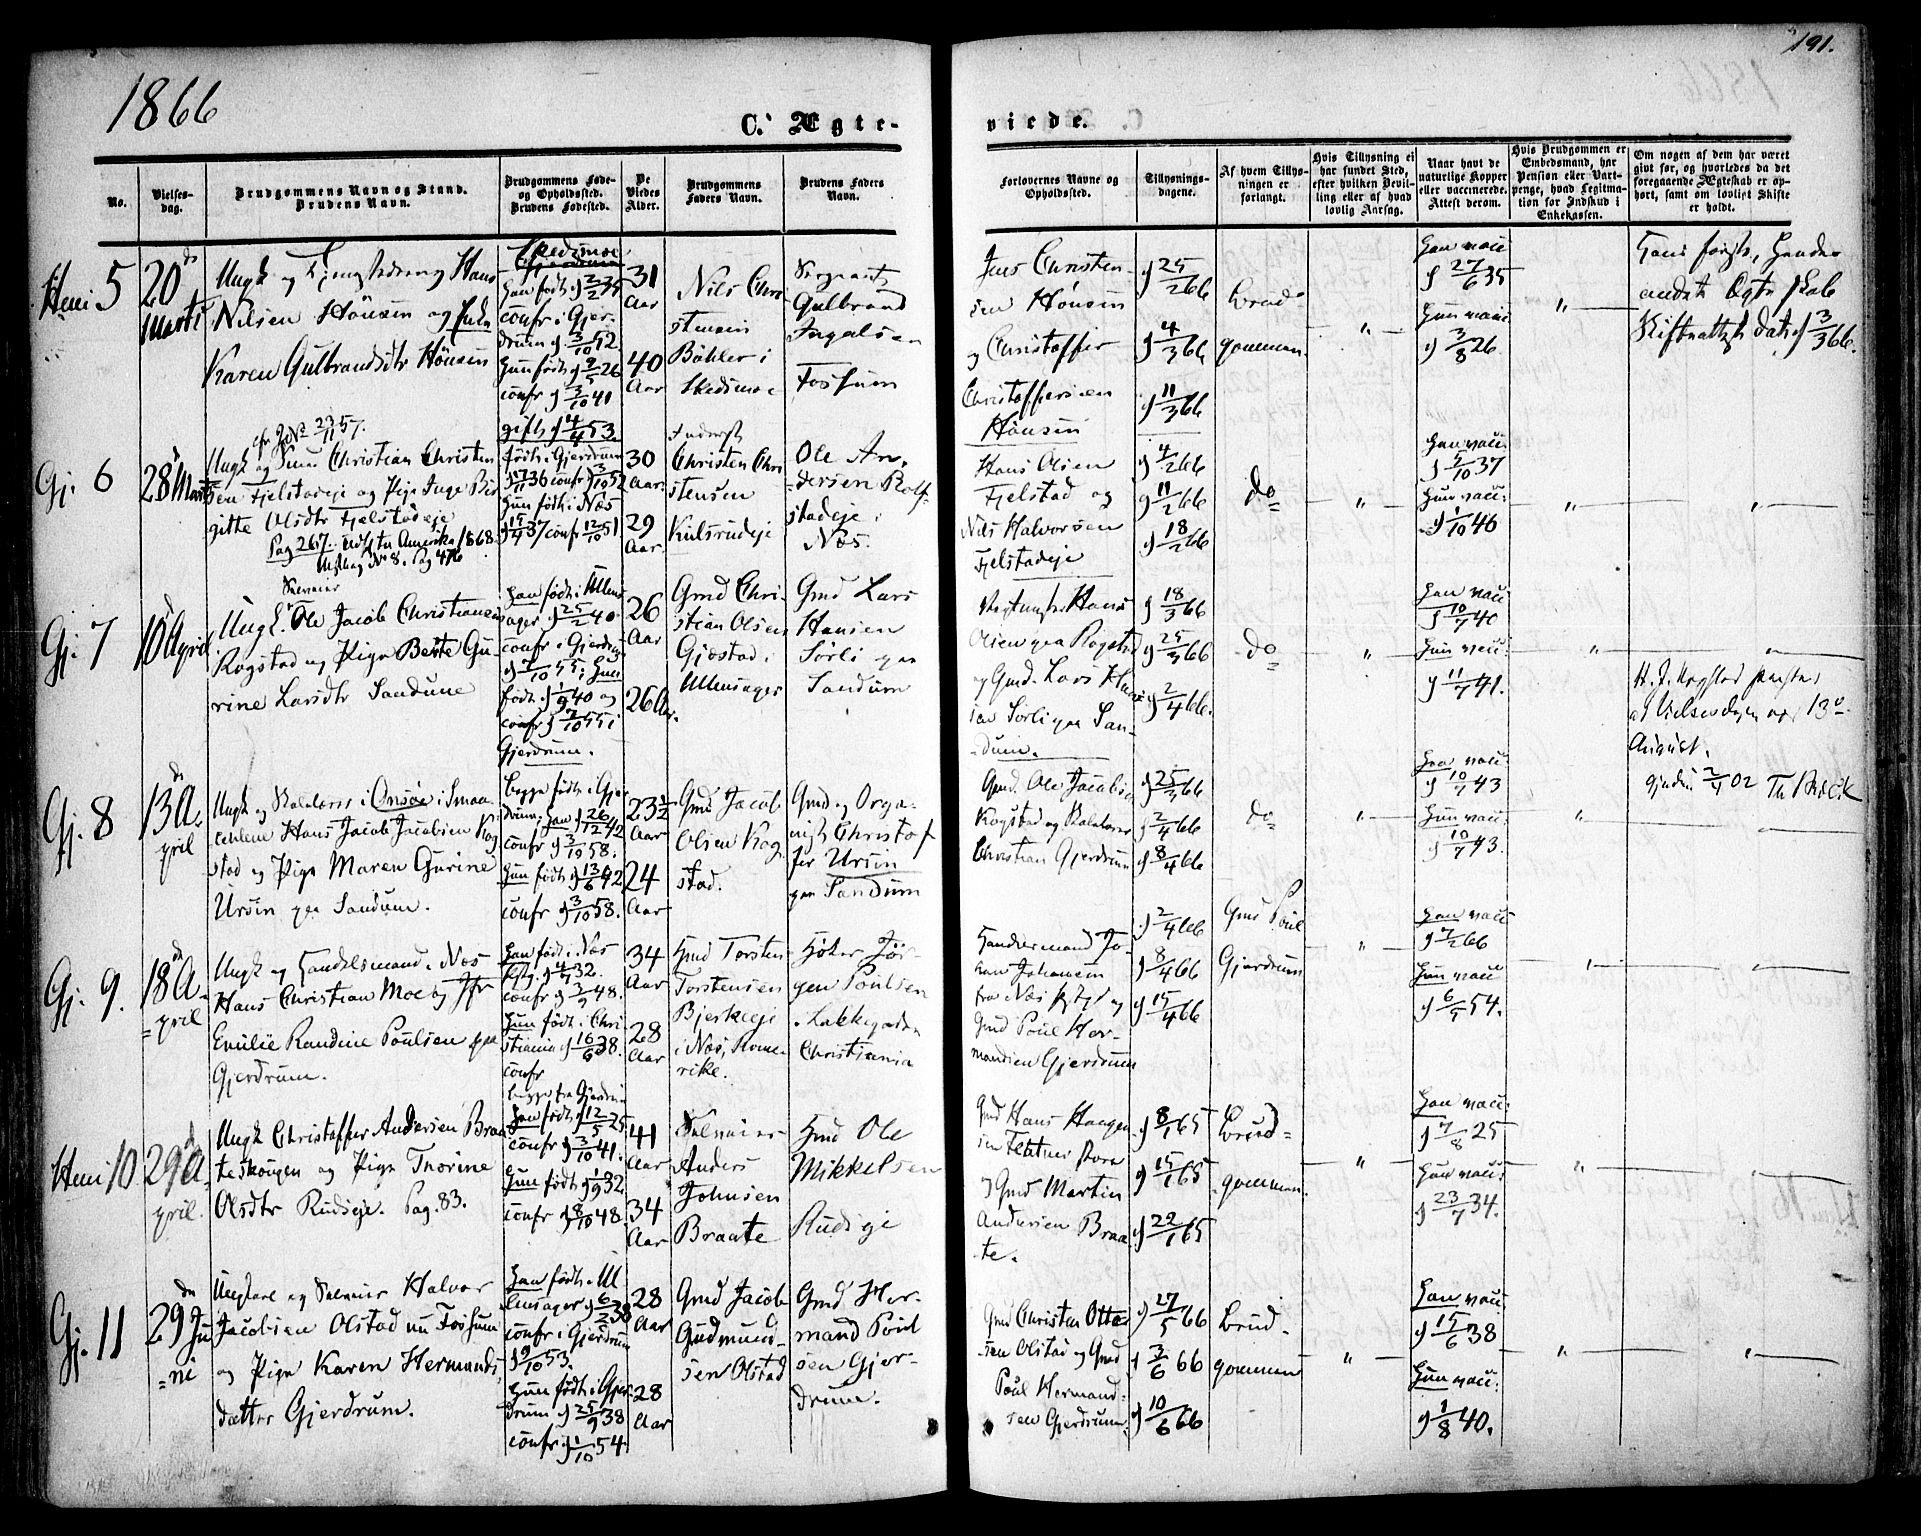 191.
1866
C. Ægte-
viede.
No.
Vielses-
dag.
Brudgommens Navn og Stand.
Brudens Navn.
Brudgommens Føde-
og Opholdssted.
Brudens Fødested.
De
Viedes
Alder.
Brudgommens
Faders Navn.
Brudens Faders
Navn.
Forlovernes Navne og
Opholdssted.
Tillysnings-
dagene.
Af hvem Tillys-
ningen er
forlangt.
Hvis Tillysning ei
har fundet Sted,
efter hvilken Bevil-
ling eller af hvad
lovlig Aarsag.
Naar havt de
naturlige Kopper
eller vaccinerede.
Attest derom.
Hvis Brudgommen er
Embedsmand, har
Pension eller Vart-
penge, hvad Legitima-
tion for Indskud i
Enkekassen.
Om nogen af dem har været
givt før, og hvorledes da det
foregaaende Ægteskab er op-
hørt, samt om lovligt Skifte
er holdt.
Heni 5
20de
Marts
Ungk og Hans
Nilsen Hønsen og Enke
Karen Gulbrandsdtr Hønsen
Skedsmoe
Han født d 2/2 35
confr i Gjer-
drum d 3/10 52
Hun født d 9/5 26
confr d 3/10 41
gift d 4/4 53.
31
Aar
40
Aar
Nils Chri
stensen
Böhler i
Skedsmoe
Sergeant
Gulbrand
Ingalsen
Fossum
Jens Christen-
sen Hønsen
og Christoffer
Christoffersen
Hønsen
d 25/2 66
d 4/3 66
d 11/3 66
Brud-
gommen.
"
Han vacc
d 27/6 35
Hun vacc
d 3/8 26.
"
Hans første, Hendes
andet Ægteskab
Skifteattest dat. d 3/3 66.
Gj. 6
28 Marts
Ungk og Christian Christen
sen Fjelstadeje og Pige Inge Bir
gitte Olsdtr Fjelstadeje
Pag 267. Udfl. til Amerika 1868.
No 8. Pag 476
født i Gjerdrum
d 17/11 36 confr d 3/10 52
Hun født i Næs
d 15/4 37 confr 12/10 51
30
Aar.
29
Aar.
Inderst
Christen Chri
stensen
Kulsrudeje
Ole An-
dersen Rolf-
stadeje i
Næs.
Hans Olsen
Fjelstad og
Nils Halvorsen
Fjelstadeje
d 4/2 66
d 11/2 66
d 18/2 66
do
"
Han vacc.
d 5/10 37
Hun vacc.
d 1/10 40
"
"
Gj. 7
10 April
Selveier
Ungk. Ole Jacob Christiansen
Rogstad og Pige Berte Gu-
rine Larsdtr Sandum
Han født i Ullens
ager d 25/2 40.
confr i Gjerdrum
d 7/10 55; Hun
født d 1/9 40 og
confr d 7/10 55 i
Gjerdrum.
26
Aar
26 Aar.
Gmd Chri-
stian Olsen
Gjøstad i
Ullensager
Gmd Lars
Hansen
Sørli paa
Sandum
Hans
Olsen paa Rogstad
og Gmd. Lars Han
sen Sörli paa San-
dum.
d 18/3 66
d 25/3 66
d 2/4 66.
do
"
Han vacc
d 10/7 40
Hun vacc.
d 11/7 41.
"
"
H. J. Rogstad paastaar
at Vielsesdagen var 13de
August.
Gjerdr. 2/4 02 Th
Gj. 8
13 A-
pril
Ungk og i Onsøe i Smaa-
lehnene Hans Jacob Jacobsen Rog
stad og Pige Maren Gurine
Ursin paa Sandum.
begge født i Gjer
drum; Han d 26/12 42
confr d 3/10 58.
Hun født d 13/6 42
confr d 3/10 58.
23½
Aar
24
Aar
Gmd Jacob
Olsen Rog
stad.
Gmd og Orga-
nist Christof
fer Ursin
paa Sandum
Gmd. Ole Jacobsen
Rogstad og
Christian Gjerdrum
d 25/3 66
d 2/4 66
d 8/4 66
do
"
Han vacc.
d 10/7 43
Hun vacc.
d 10/7 43.
"
Gj. 9.
18 A-
pril
Ungk og Handelsmand i Næs
Hans Christian Moe og Jfr
Emilie Randine Poulsen paa
Gjerdrum.
Han født i Næs
d 4/7 32.
confr d 3/9 48.
Hun født i Chri
stiania d 16/6 38.
confr
34
Aar
28
Aar
Gmd Torsten
Torstensen
Bjerkeeje
i Næs, Rome-
rike.
Høker Jör-
gen Poulsen
Lakkegaden
Christiania
Handelsmand Jo-
han Johansen
fra Næs og
Gmd Poul Her-
mandsen Gjerdrum
d 2/4 66
d 8/4 66
d 15/4 66
Gmd Poul
Gjerdrum
"
Han vacc
d 7/2 66
Hun vacc
d 6/5 54.
"
Heni 10
29 A-
pril.
Ungk Christoffer Andersen Braa
teskougen og Pige Thorine
Olsdtr Rudseje. Pag. 83.
begge fra Gjerdrum
Han født d 12/5 25
confr d 3/10 41.
Hun født d 1/9 32.
confr d 8/10 48.
41
Aar
34
Aar
Selveier
Anders
Johnsen
Braate
Gmd Ole
Mikkelsen
Rudseje
Gmd Hans Haagen
sen
og Gmd Martin
Andersen Braa-
te.
d 8/1 65
d 15/1 65
d 22/1 65
Brud-
gommen.
"
Han vacc.
d 7/8 25
Hun vacc.
d 23/7 34.
Gj. 11
29 Ju-
ni
Ungkarl og Selveier Halvor
Jacobsen Olstad nu Fossum
og Pige Karen Hermands-
datter Gjerdrum.
Han født i Ul
lensager d 6/2 38
confr i Gjerdrum
d 9/10 53.
Hun født i Gjer-
drum d 25/9 38
confr d 1/10 54.
28
Aar
28
Aar
Gmd Jacob
Gudmund
sen Olstad
Gmd Her-
mand Poul
sen Gjer-
drum.
Gmd Christen Otte-
sen Olstad og Gmd
Poul Hermand-
sen Gjerdrum.
d 27/5 66
d 3/6 66
d 10/6 66
Brud-
gommen
"
Han vacc
d 15/6 38
Hun vacc.
d 1/8 40.
"
"